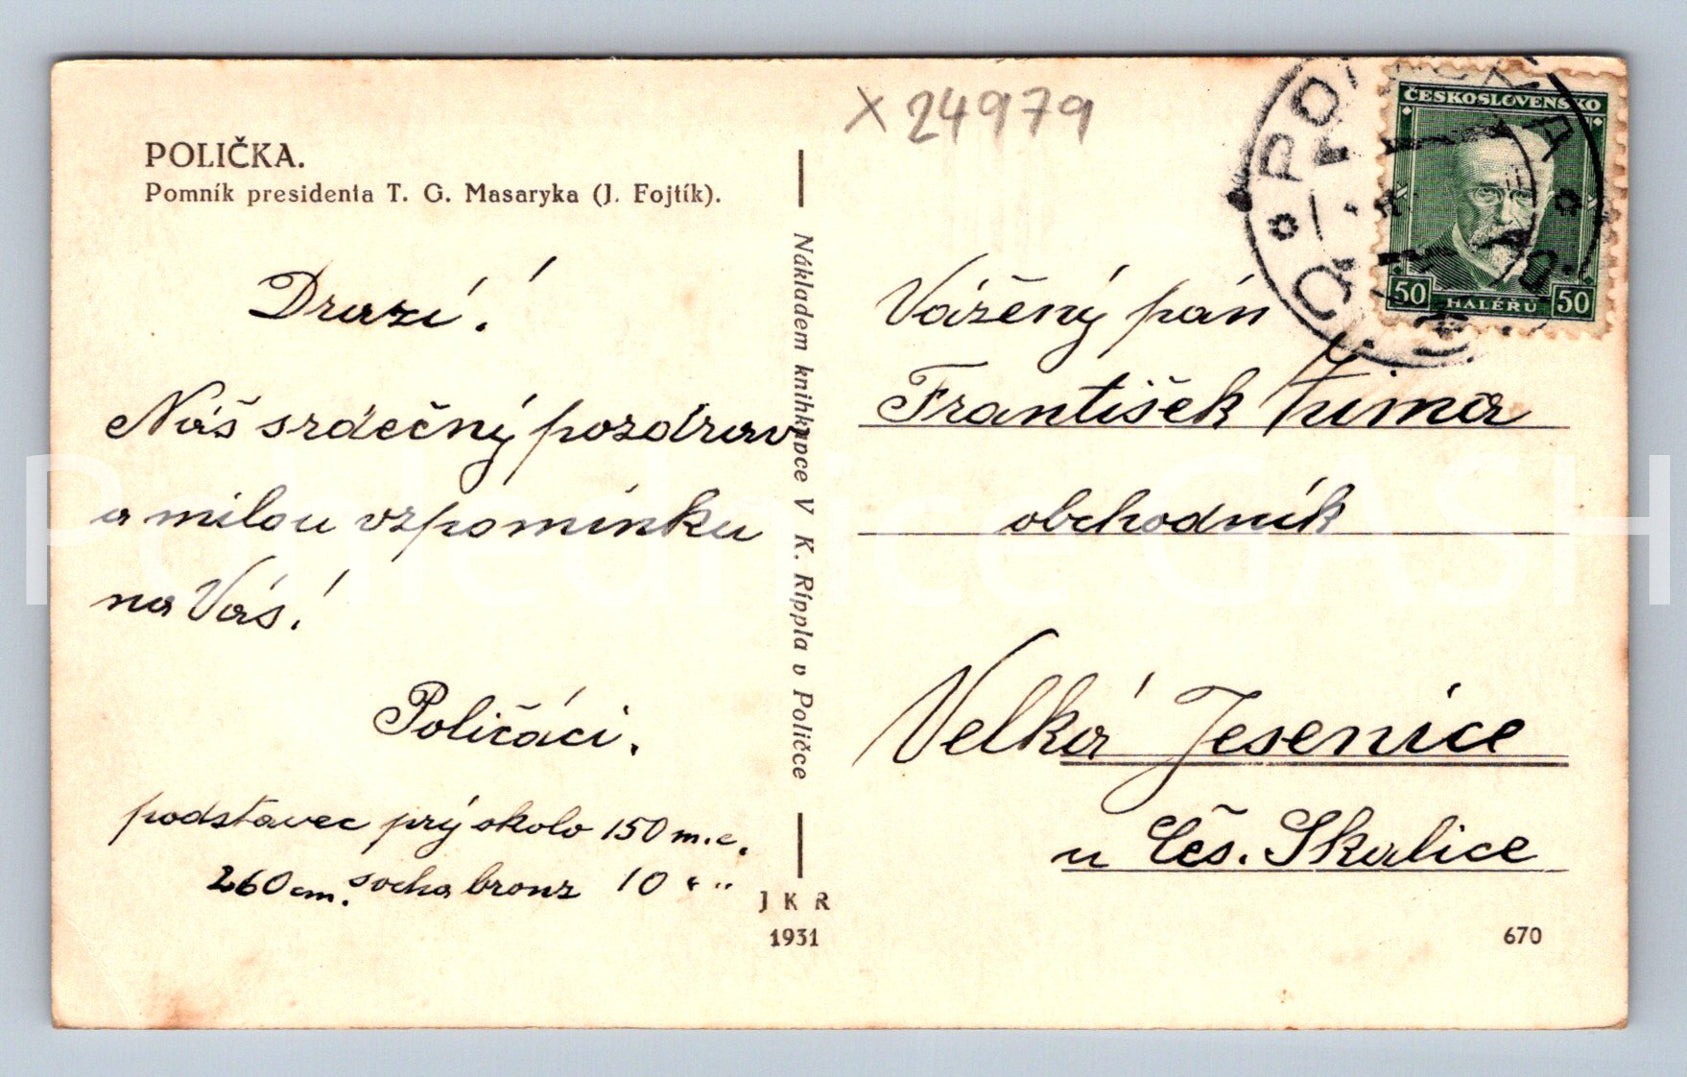 x 24979
POLIČKA.
Pomník presidenta T. G. Masaryka (J. Fojtík).
Drazí!
Náš srdečný pozdrav
a milou vzpomínku
na Vás!
Poličáci.
podstavec prý okolo 150 m.c.
260 cm. socha bronz 10 " "
Nákladem knihkupce V. K. Rippla v Poličce
J K R
1931
ČESKOSLOVENSKO
50 HALÉŘŮ 50
Vážený pán
František
obchodník
Velká Jesenice
u Čes. Skalice
670
Pohlednice GASH